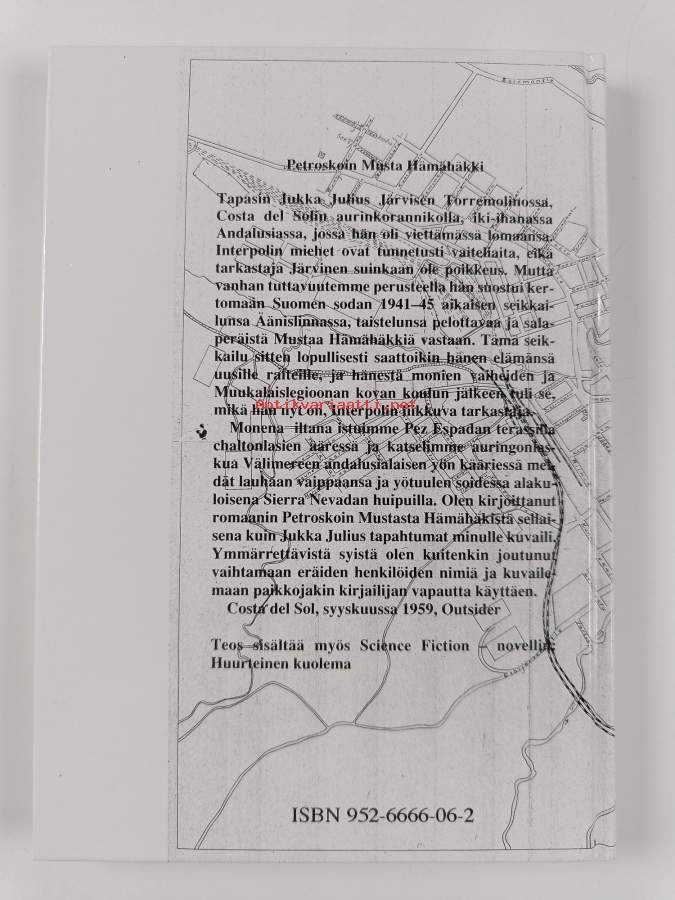 Petroskoin Musta Hämähäkki
Tapasin Jukka Julius Järvisen Torremolinossa,
Costa del Solin aurinkorannikolla, iki-ihanassa
Andalusiassa, jossa hän oli viettämässä lomaansa.
Interpolin miehet ovat tunnetusti vaiteliaita, eikä
tarkastaja Järvinen suinkaan ole poikkeus. Mutta
vanhan tuttavuutemme perusteella hän suostui ker-
tomaan Suomen sodan 1941–45 aikaisen seikkai-
lunsa Äänislinnassa, taistelunsa pelottavaa ja sala-
peräistä Mustaa Hämähäkkiä vastaan. Tämä seik-
kailu sitten lopullisesti saattoikin hänen elämänsä
uusille raiteille, ja hänestä monien vaiheiden ja
Muukalaislegioonan kovan koulun jälkeen tuli se,
mikä hän nyt on, Interpolin liikkuva tarkastaja.
Antikvariaatti.net
Monena iltana istuimme Pez Espadan terassilla
chaltonlasien ääressä ja katselimme auringonlas-
kua Välimereen andalusialaisen yön kääriessä mei-
dät lauhaan vaippaansa ja yötuulen soidessa alaku-
loisena Sierra Nevadan huipuilla. Olen kirjoittanut
romaanin Petroskoin Mustasta Hämähäkistä sellai-
sena kuin Jukka Julius tapahtumat minulle kuvaili.
Ymmärrettävistä syistä olen kuitenkin joutunut
vaihtamaan eräiden henkilöiden nimiä ja kuvaile-
maan paikkojakin kirjailijan vapautta käyttäen.
Costa del Sol, syyskuussa 1959, Outsider
Teos sisältää myös Science Fiction – novellin:
Huurteinen kuolema
ISBN 952-6666-06-2